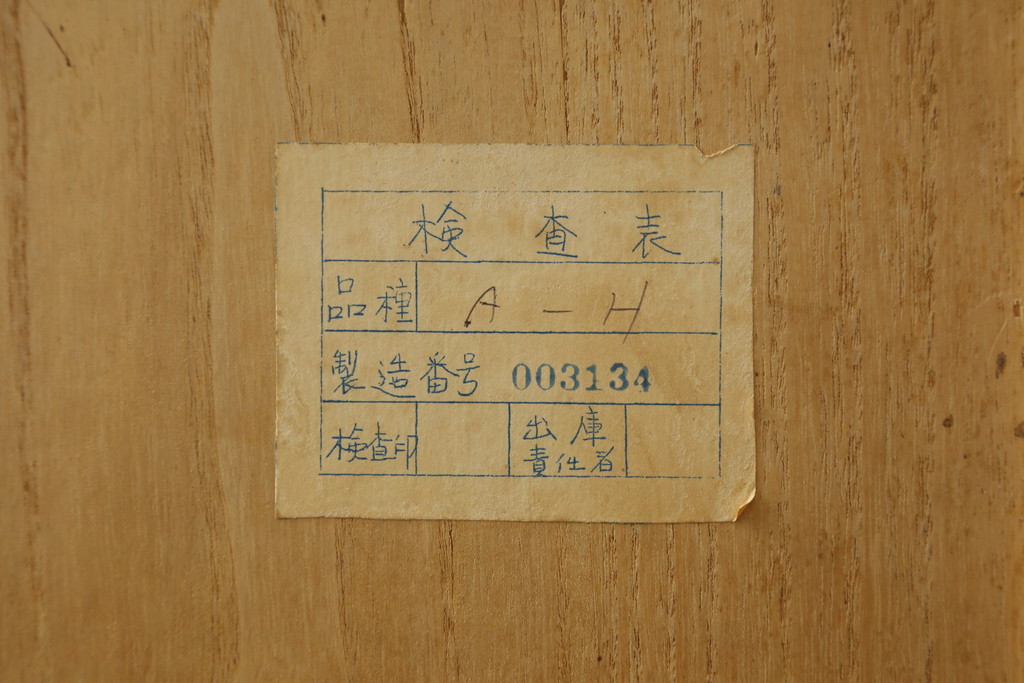 検査表
品種 A-H
製造番号 003134
検査印 出庫
責任者